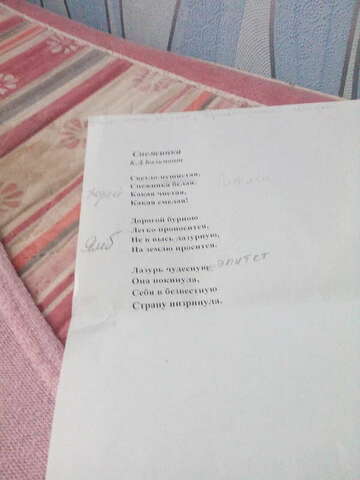 Снежинка
К.Д.Бальмонт
Светло-пушистая,
Снежинка белая,
Какая чистая,
Какая смелая!
Дорогой бурною
Легко проносится,
Не в высь лазурную,
На землю просится.
Ямб
Лазурь чудесную эпитет
Она покинула,
Себя в безвестную
Страну низринула.